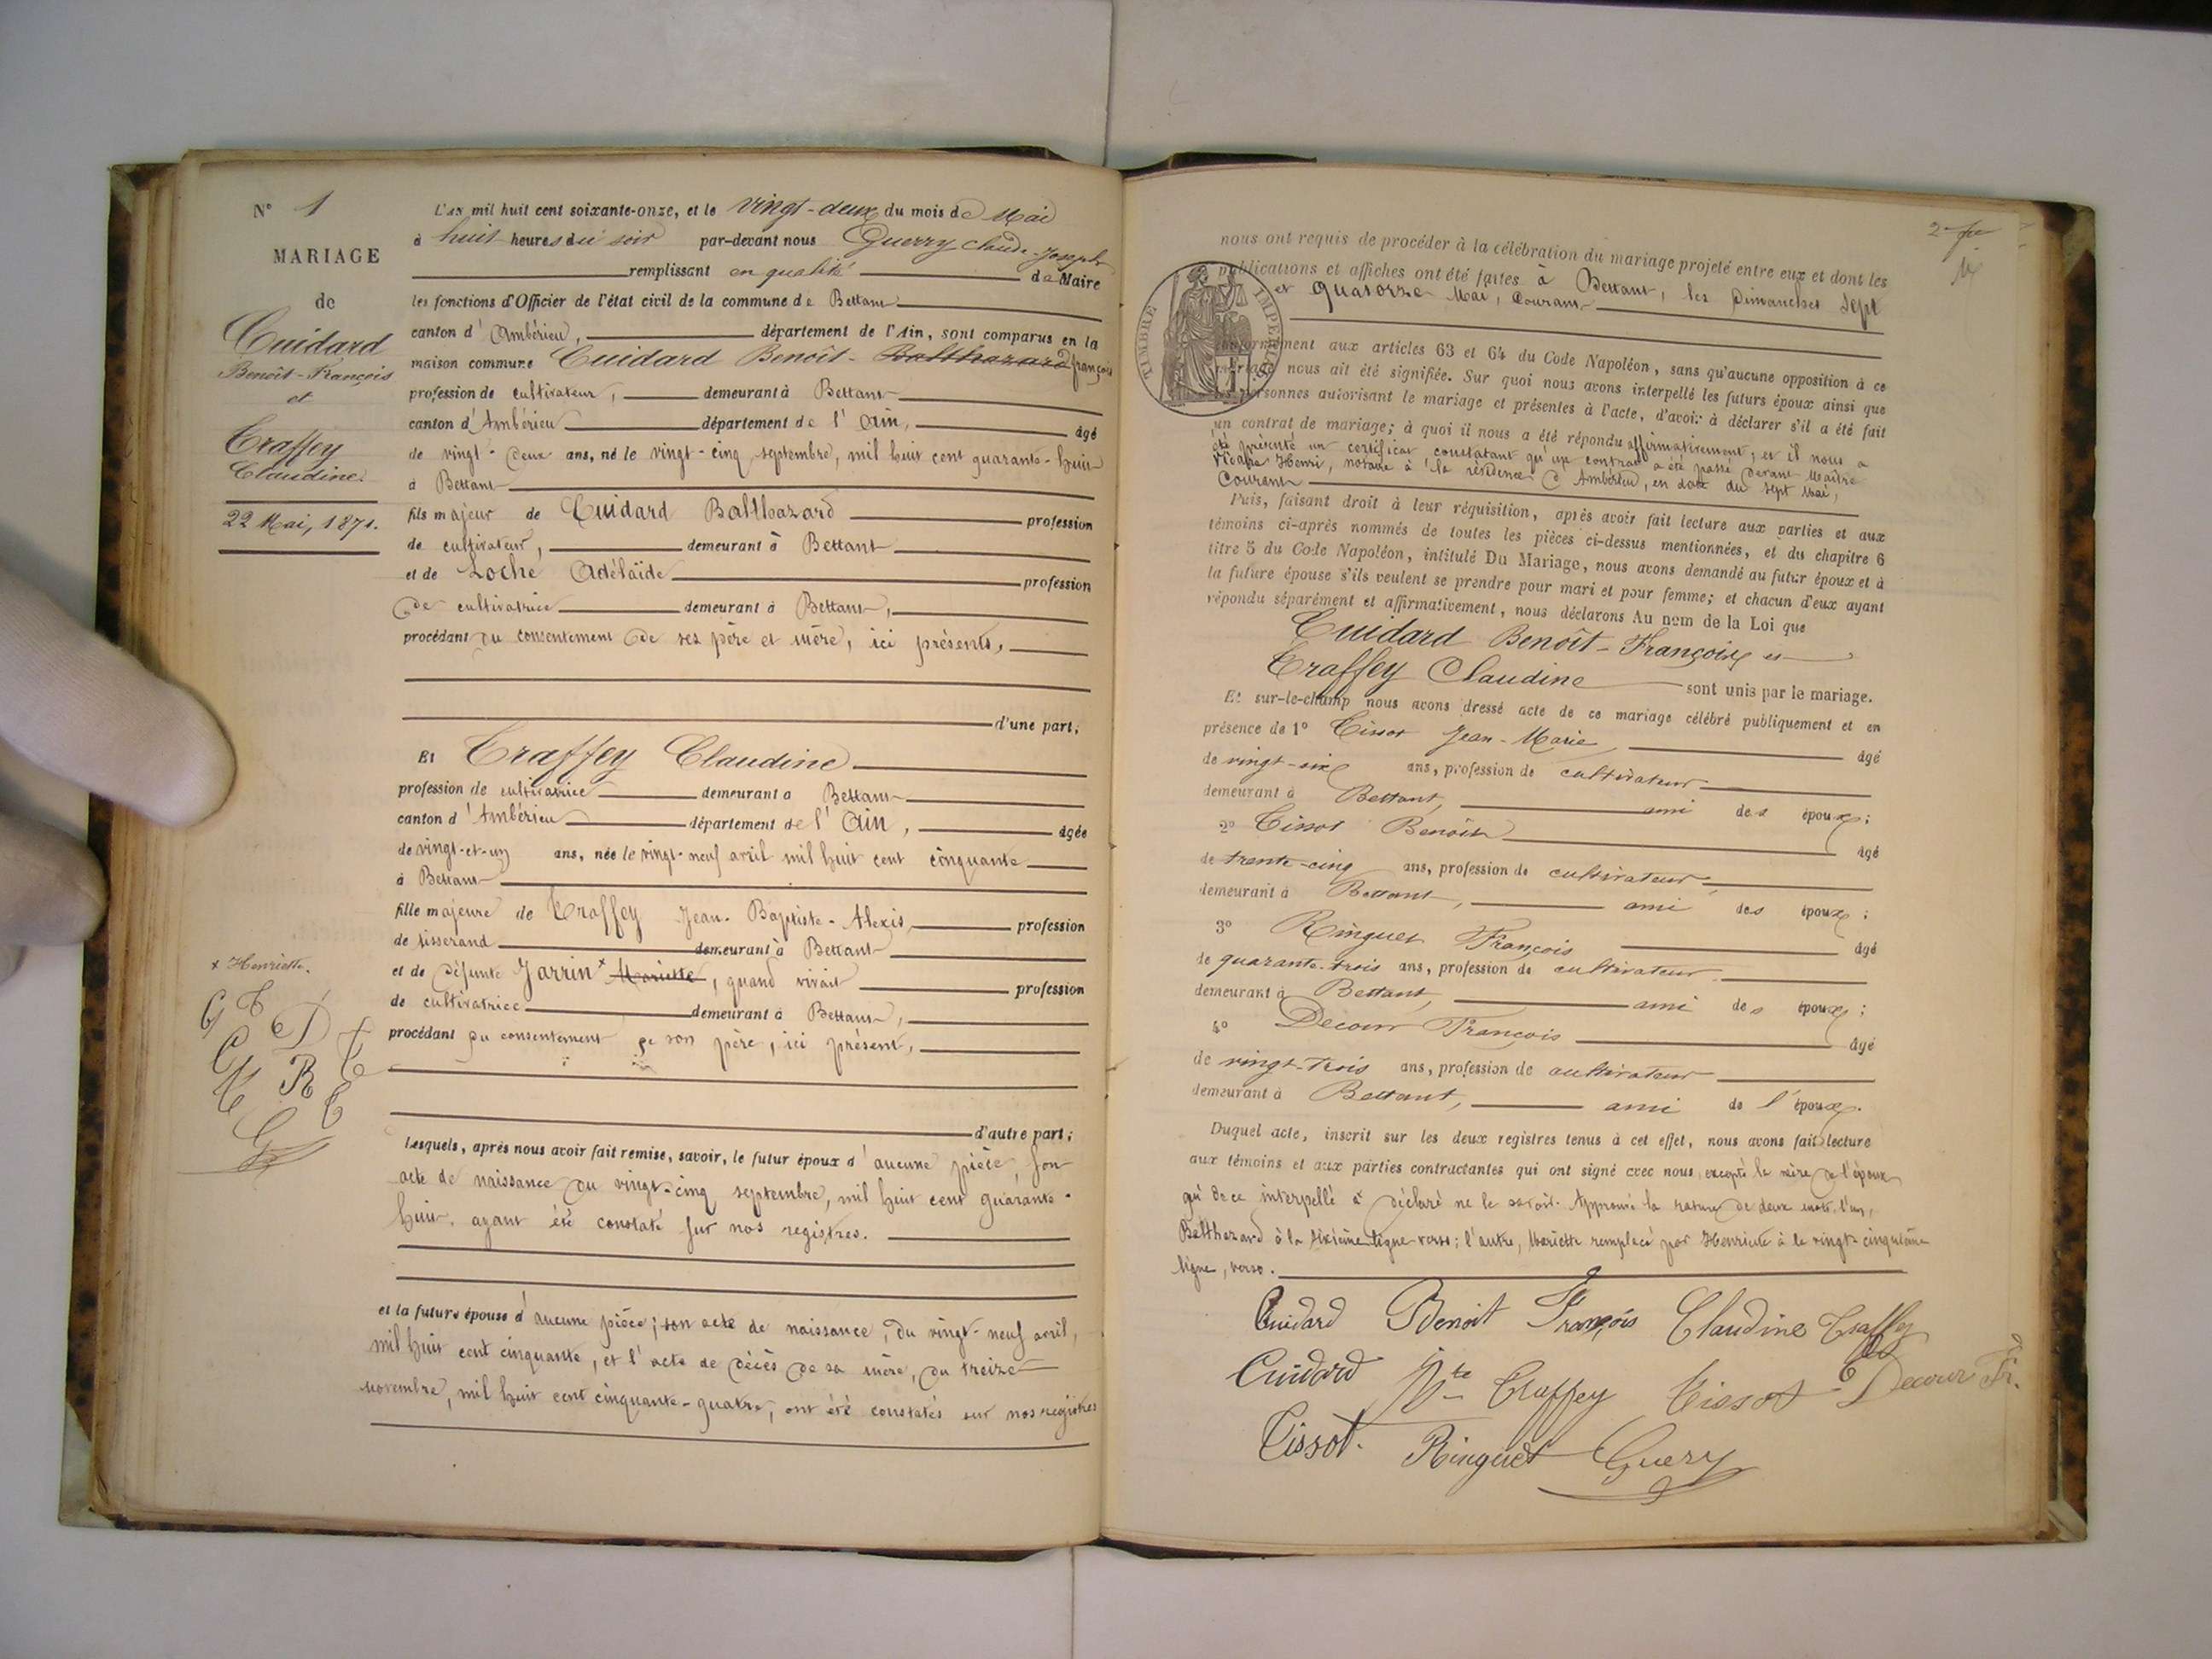 N° 1
MARIAGE
de
Cuidard
Benoît-François
et
Traffey
Claudine.
22 Mai, 1871.
L'AN mil huit cent soixante-onze, et le vingt-deux du mois de Mai
à huit heures du soir par-devant nous Querry Claude-Joseph
remplissant en qualité de Maire
les fonctions d'Officier de l'état civil de la commune de Bettant
canton d'Ambérieu, département de l'Ain, sont comparus en la
maison commune Cuidard Benoît-Balthazard françois
profession de cultivateur, demeurant à Bettant
canton d'Ambérieu département de l'Ain, âgé
de vingt-deux ans, né le vingt-cinq septembre, mil huit cent quarante-huit
à Bettant
fils majeur de Cuidard Balthazard profession
de cultivateur, demeurant à Bettant
et de Loche Adélaïde profession
de cultivatrice demeurant à Bettant,
procédant du consentement de ses père et mère, ici présents,
d'une part;
Et Traffey Claudine
profession de cultivatrice demeurant à Bettant
canton d'Ambérieu département de l'Ain, âgée
de vingt-et-un ans, née le vingt-neuf avril mil huit cent cinquante
à Bettant
fille majeure de Traffey Jean-Baptiste-Alexis, profession
de tisserand demeurant à Bettant
et de défunte Jarrin x Mariette, quand vivait profession
de cultivatrice demeurant à Bettant,
procédant du consentement de son père, ici présent,
d'autre part;
x Henriette.
Lesquels, après nous avoir fait remise, savoir, le futur époux d'aucune pièce, son
acte de naissance du vingt-cinq septembre, mil huit cent quarante-
huit, ayant été constaté sur nos registres.
et la future épouse d'aucune pièce; son acte de naissance, du vingt-neuf avril,
mil huit cent cinquante, et l'acte de décès de sa mère, du treize
novembre, mil huit cent cinquante-quatre, ont été constatés sur nos registres
nous ont requis de procéder à la célébration du mariage projeté entre eux et dont les
publications et affiches ont été faites à Bettant, les Dimanches sept
et quatorze Mai, courant
TIMBRE IMPERIAL
conformément aux articles 63 et 64 du Code Napoléon, sans qu'aucune opposition à ce
mariage nous ait été signifiée. Sur quoi nous avons interpellé les futurs époux ainsi que
les personnes autorisant le mariage et présentes à l'acte, d'avoir à déclarer s'il a été fait
un contrat de mariage; à quoi il nous a été répondu affirmativement; et il nous a
été présenté un certificat constatant qu'un contrat a été passé devant Maître
Henri, notaire à la résidence d'Ambérieu, en date du sept mai,
courant
Puis, faisant droit à leur réquisition, après avoir fait lecture aux parties et aux
témoins ci-après nommés de toutes les pièces ci-dessus mentionnées, et du chapitre 6
titre 5 du Code Napoléon, intitulé Du Mariage, nous avons demandé au futur époux et à
la future épouse s'ils veulent se prendre pour mari et pour femme; et chacun d'eux ayant
répondu séparément et affirmativement, nous déclarons Au nom de la Loi que
Cuidard Benoît-François et
Traffey Claudine sont unis par le mariage.
Et sur-le-champ nous avons dressé acte de ce mariage célébré publiquement et en
présence de 1° Tissot Jean-Marie, âgé
de vingt-six ans, profession de cultivateur
demeurant à Bettant, ami des époux;
2° Tissot Benoît âgé
de trente-cinq ans, profession de cultivateur,
demeurant à Bettant, ami des époux;
3° Ringuet François âgé
de quarante-trois ans, profession de cultivateur
demeurant à Bettant, ami des époux;
4° Decour François âgé
de vingt-trois ans, profession de cultivateur
demeurant à Bettant, ami de l'époux.
Duquel acte, inscrit sur les deux registres tenus à cet effet, nous avons fait lecture
aux témoins et aux parties contractantes qui ont signé avec nous, excepté la mère de l'époux
qui de ce interpellé a déclaré ne le savoir. Approuvé la rature de deux mots, l'un,
Balthazard à la sixième ligne verso; l'autre, Mariette remplacé par Henriette à la vingt-cinquième
ligne, verso.
Cuidard Benoit François Claudine Traffey
Cuidard Bte Traffey Tissot Decour Fr.
Tissot. Ringuet Guery